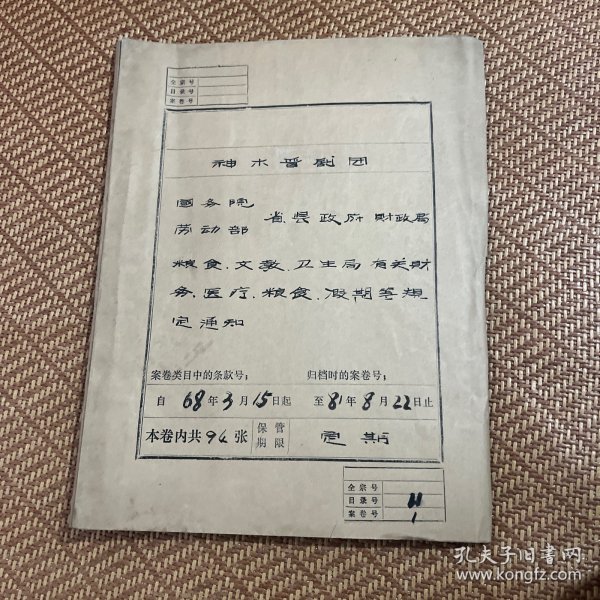 全宗号
目录号
案卷号
神木晋剧团
国务院
劳动部 省、县政府 财政局
粮食、文教、卫生局有关财
务、医疗、粮食、假期等规
定通知
案卷类目中的条款号； 归档时的案卷号；
自 68年3月15日起 至 81年8月22日止
本卷内共 96 张 保管期限 定期
全宗号
目录号 11
案卷号 1
孔夫子旧书网
www.kongfz.com